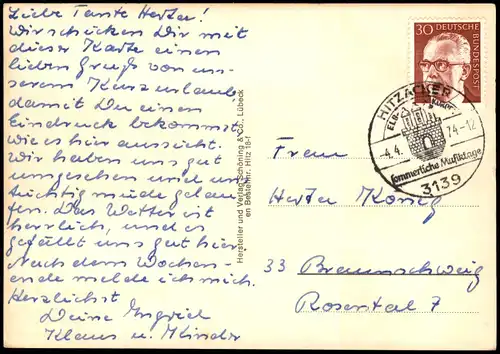 Liebe Tante Herta!
Wir schicken Dir mit
dieser Karte einen
lieben Gruß von un-
serem Kurzurlaub
damit Du einen
Eindruck bekommst,
wie es hier aussieht.
Wir haben uns gut
umgesehen und uns
tüchtig müde gelau-
fen. Das Wetter ist
herrlich, und es
gefällt uns gut hier.
Nach dem Wochen-
ende melde ich mich.
Herzlichst
Deine Ingrid
Klaus u. Kinder
Hersteller und Verlag Schöning & Co., Lübeck
Bestellnr. Hitz 18
30 DEUTSCHE BUNDESPOST
HITZACKER
4.4. 74-12
Sommerliche Musiktage
3139
Frau
Herta König
33 Braunschweig
Rosental 7